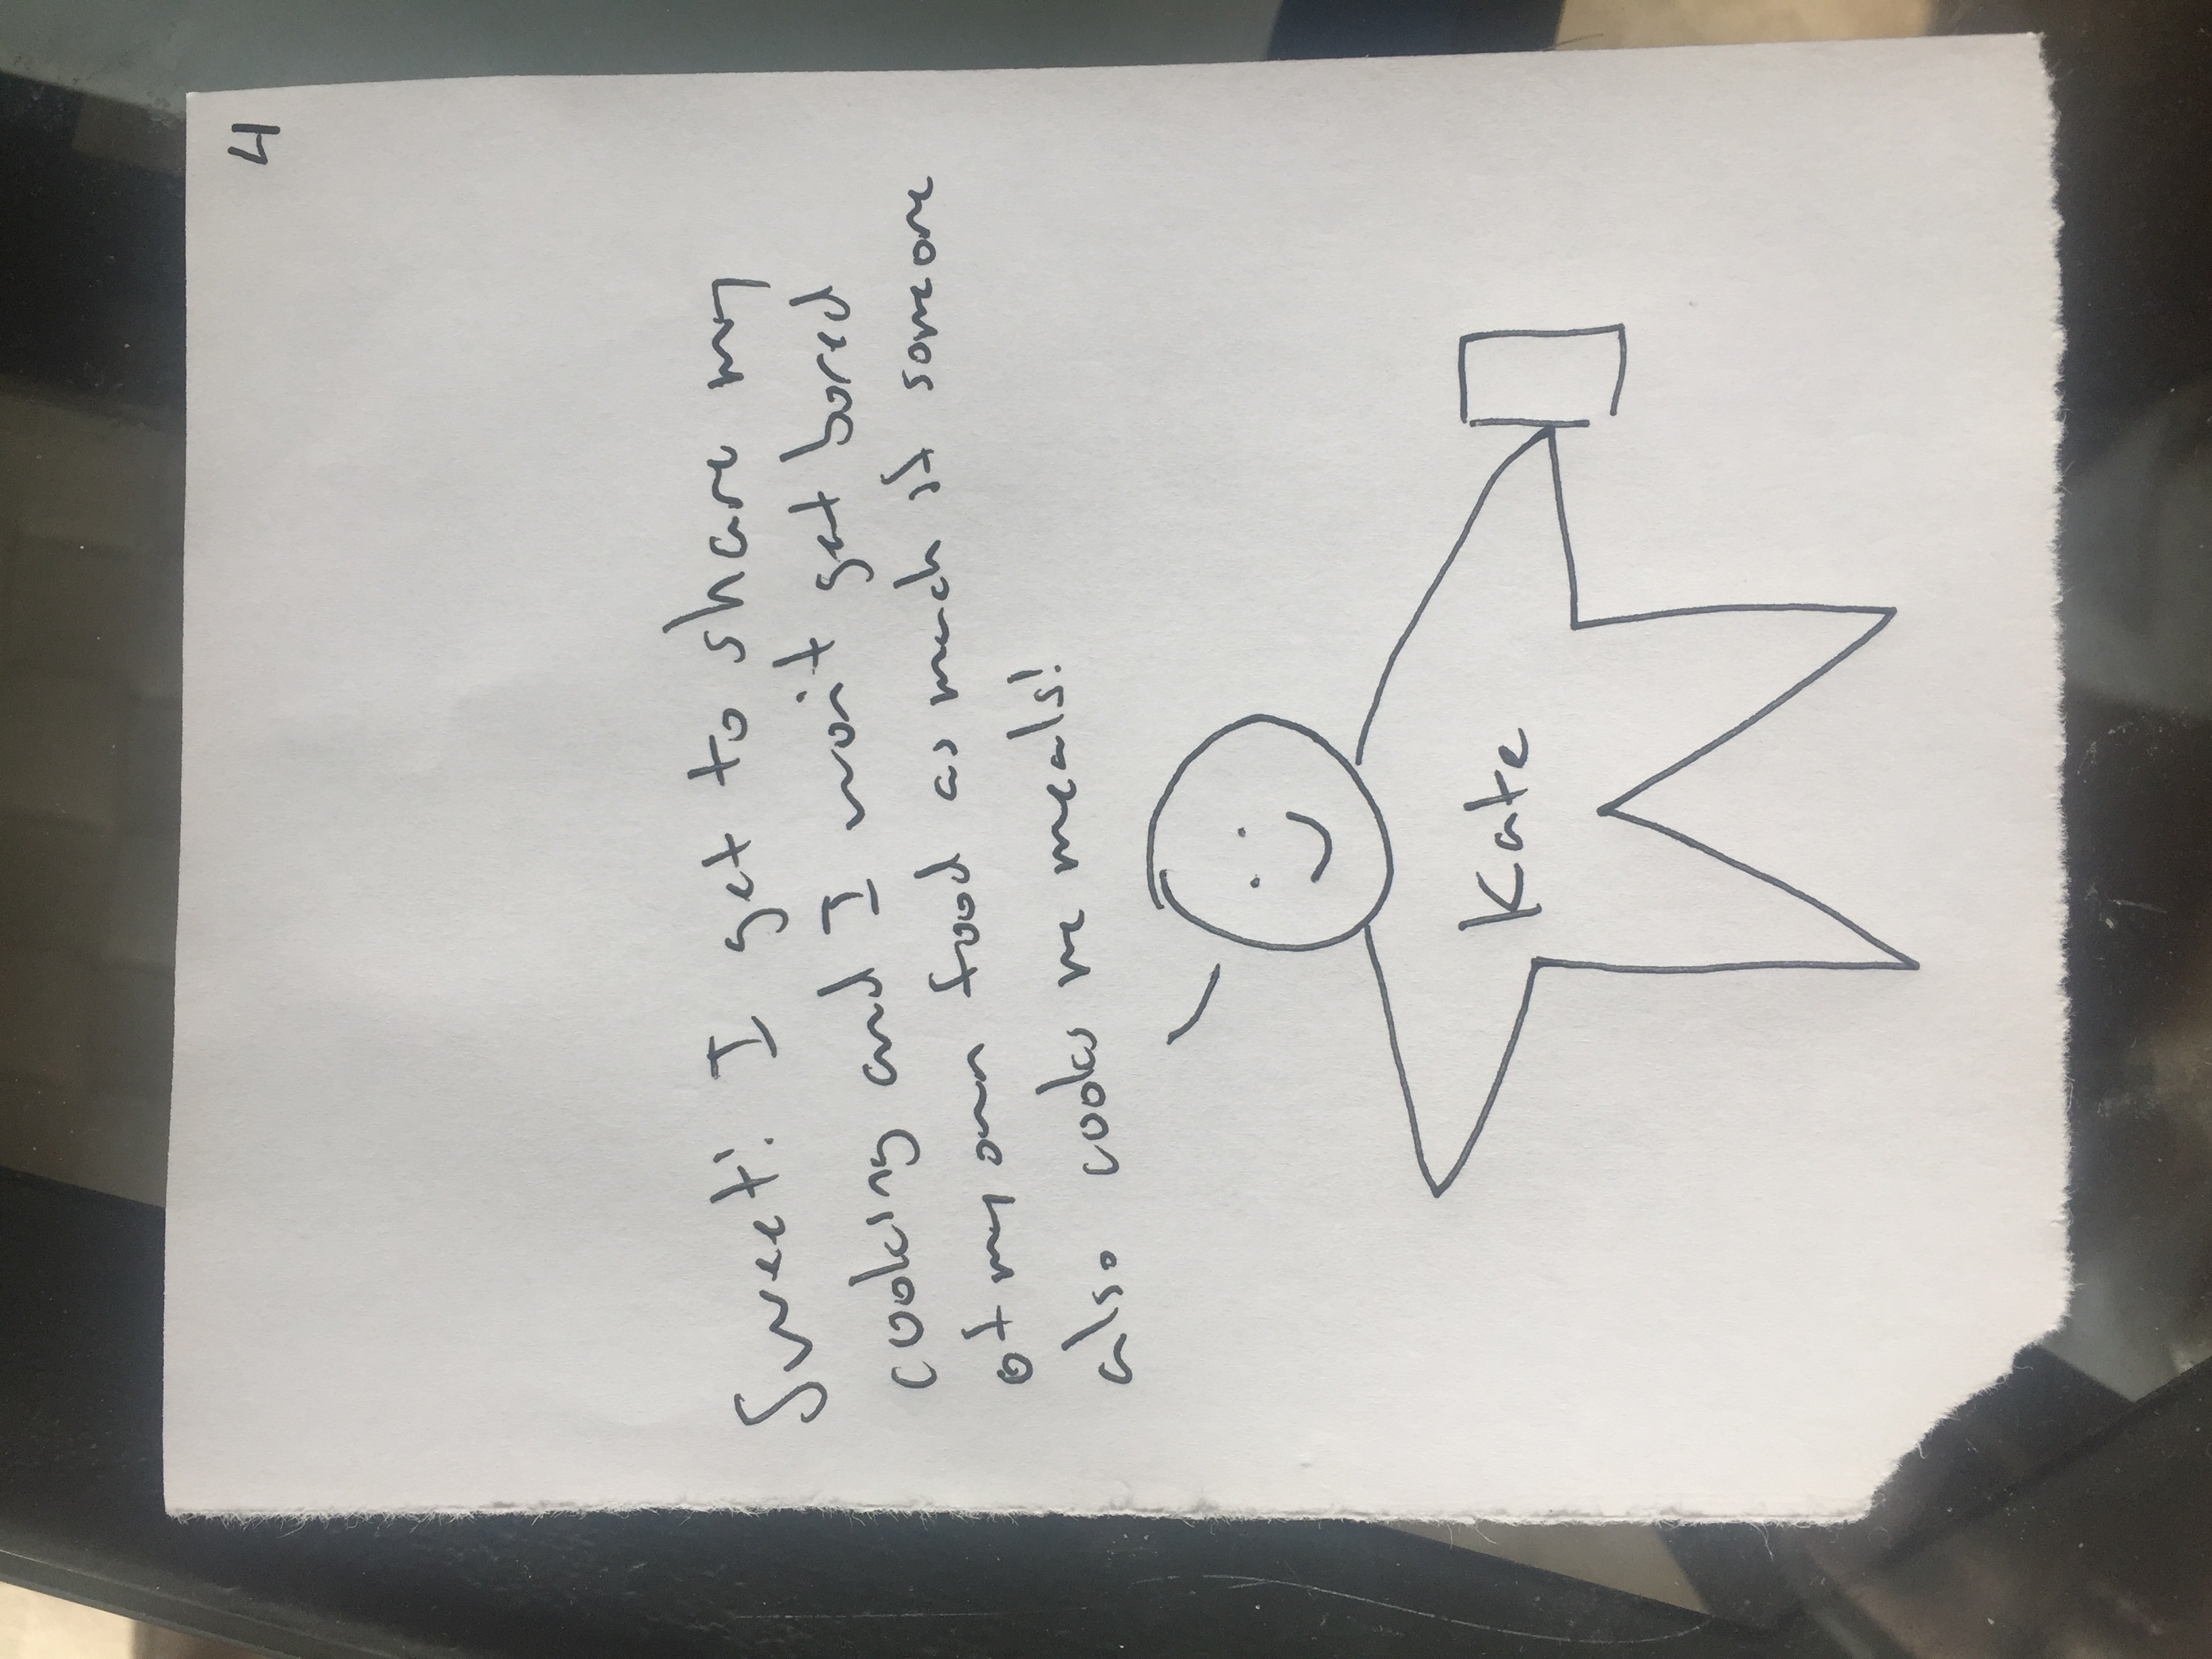 4
Sweet! I get to share my
cooking and I won't get bored
of my own food as much if someone
also cooks me meals!
Kate